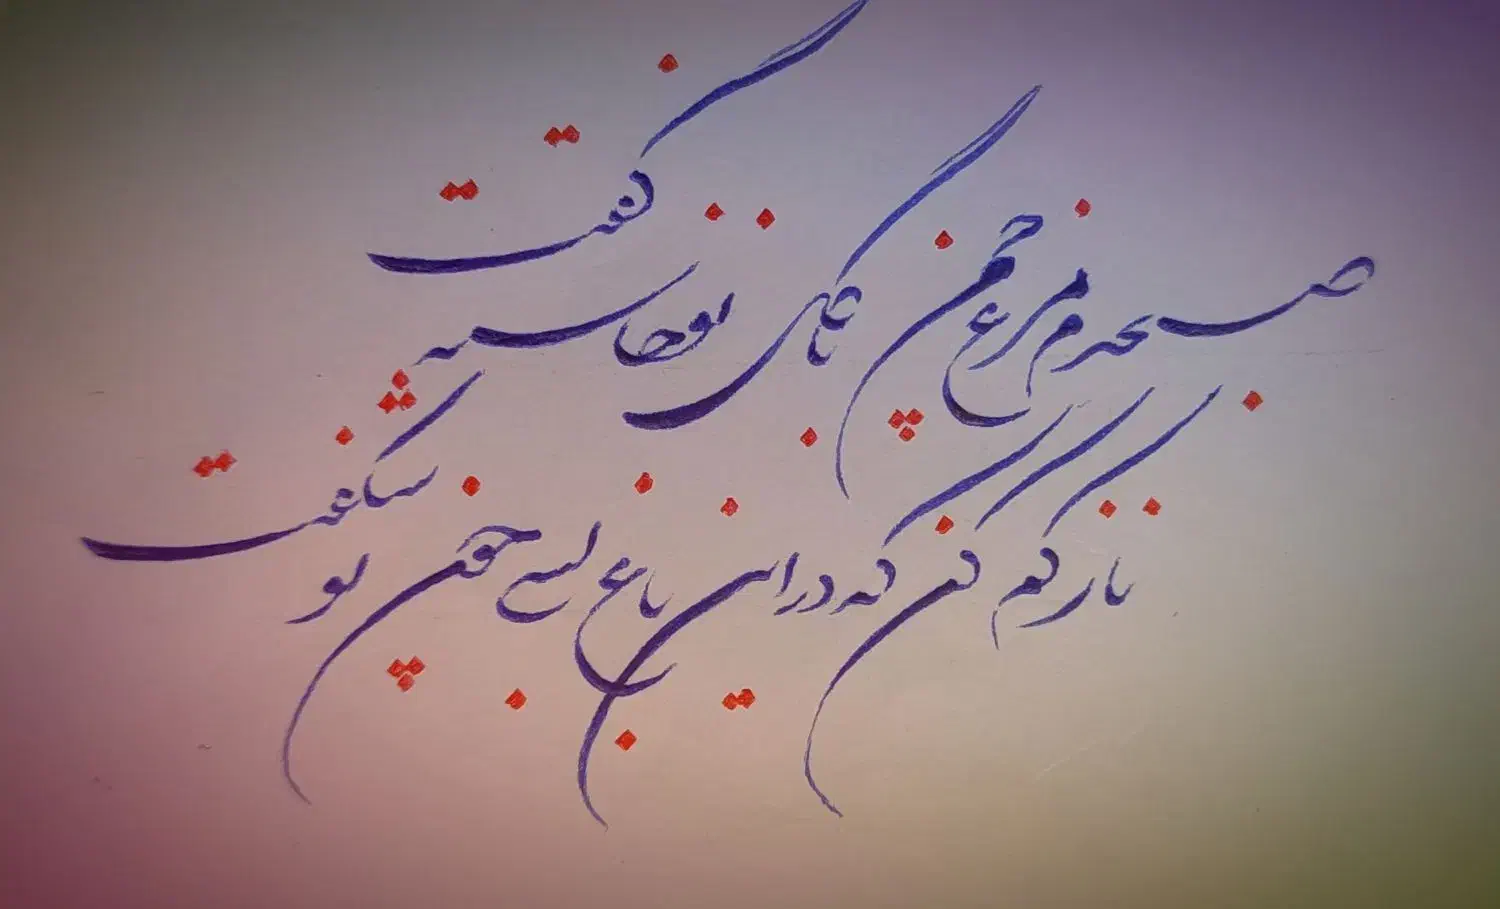 صبحدم مرغ چمن با گل نوخاسته گفت
ناز کم کن که در این باغ بسی چون تو شکفت